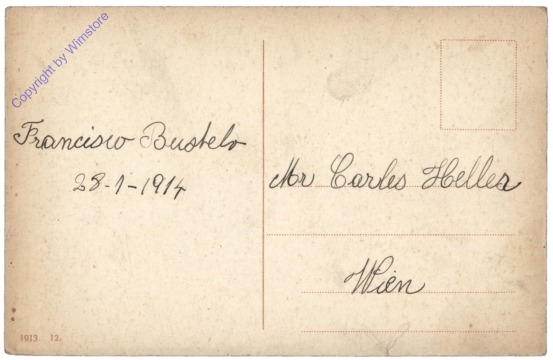 Copyright by Wimstore
Francisco Bustelo
28-1-1914
Mr Carlos Heller
Wien
1913. 12.